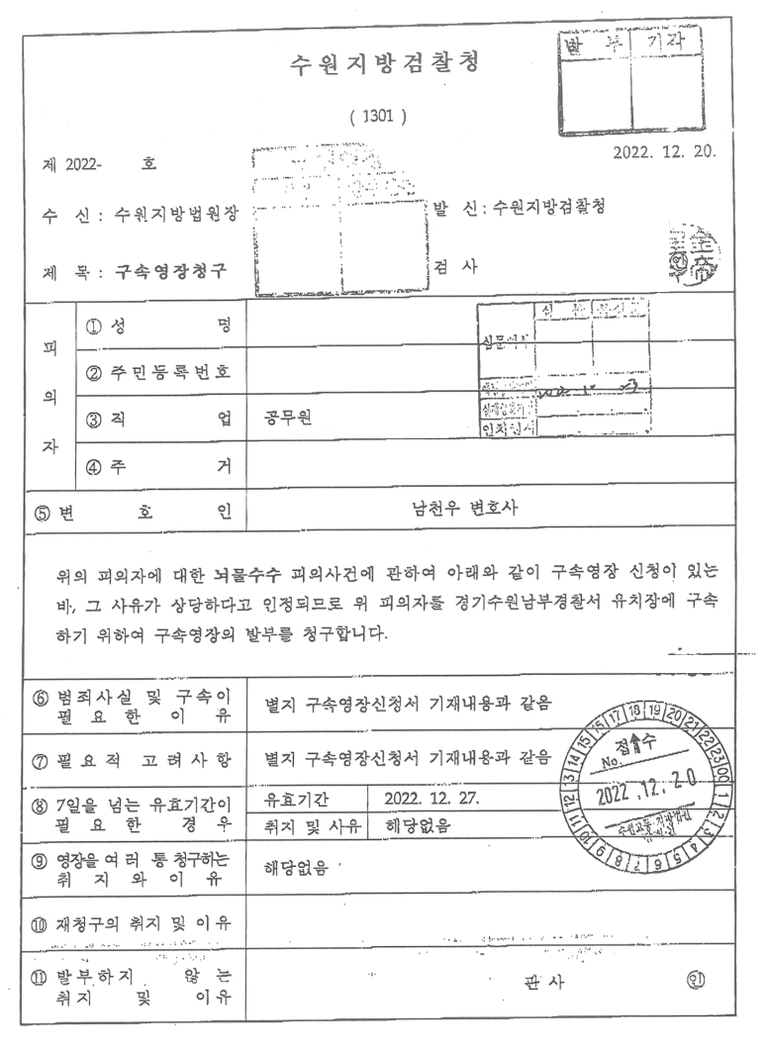 수원지방검찰청
발 부 기각
( 1301 )
제 2022- 호
2022. 12. 20.
수 신 : 수원지방법원장
발 신 : 수원지방검찰청
제 목 : 구속영장청구
검 사
피의자
① 성 명
심문여부
② 주민등록번호
③ 직 업
공무원
④ 주 거
⑤ 변 호 인
남천우 변호사
위의 피의자에 대한 뇌물수수 피의사건에 관하여 아래와 같이 구속영장 신청이 있는
바, 그 사유가 상당하다고 인정되므로 위 피의자를 경기수원남부경찰서 유치장에 구속
하기 위하여 구속영장의 발부를 청구합니다.
⑥ 범죄사실 및 구속이
필 요 한 이 유
별지 구속영장신청서 기재내용과 같음
⑦ 필요적 고려사항
별지 구속영장신청서 기재내용과 같음
⑧ 7일을 넘는 유효기간이
필 요 한 경 우
유효기간
2022. 12. 27.
취지 및 사유
해당없음
접수
No.
2022.12.20
⑨ 영장을 여러 통 청구하는
취 지 와 이 유
해당없음
⑩ 재청구의 취지 및 이유
⑪ 발부하지 않 는
취지 및 이유
판사
인